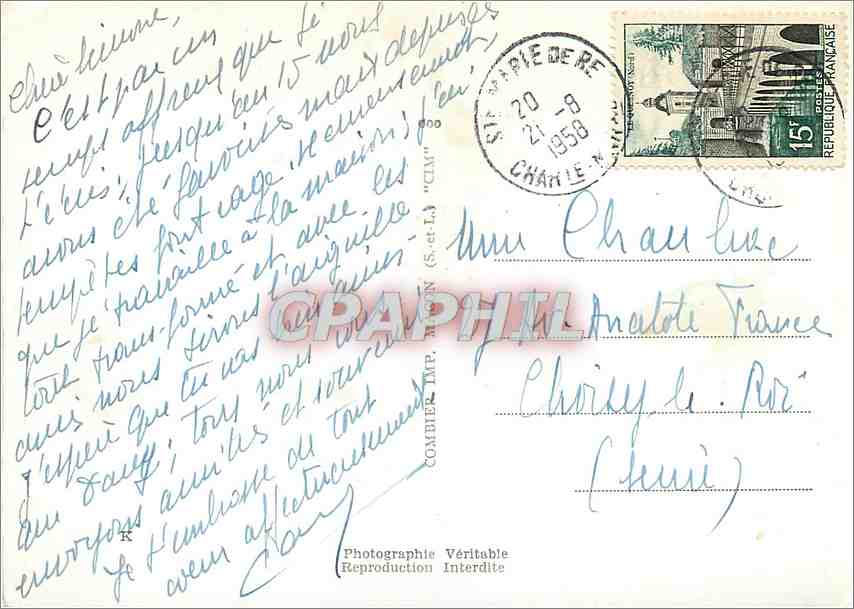 Chère Simone,
C'est par un
temps affreux que je
t'écris, jusqu'au 15 nous
avons été favorisés mais depuis les
tempêtes font rage. Heureusement
que je travaille à la maison; j'ai
tout transformé et avec les
amis nous tirons l'aiguille
J'espère que tu vas
que Dany; tous nous vous
envoyons amitiés et souvenirs
Je t'embrasse de tout
coeur affectueusement
STE MARIE DE RE
20
21-8
1958
CHARTE-MARME
LE QUESNOY (NORD)
15F
POSTES
REPUBLIQUE FRANÇAISE
Mme
Anatole France
Choisy le Roi
(Seine)
COMBIER IMP. MACON (S.-et-L.) "CIM"
CPAPHIL
K
Photographie Véritable
Reproduction Interdite